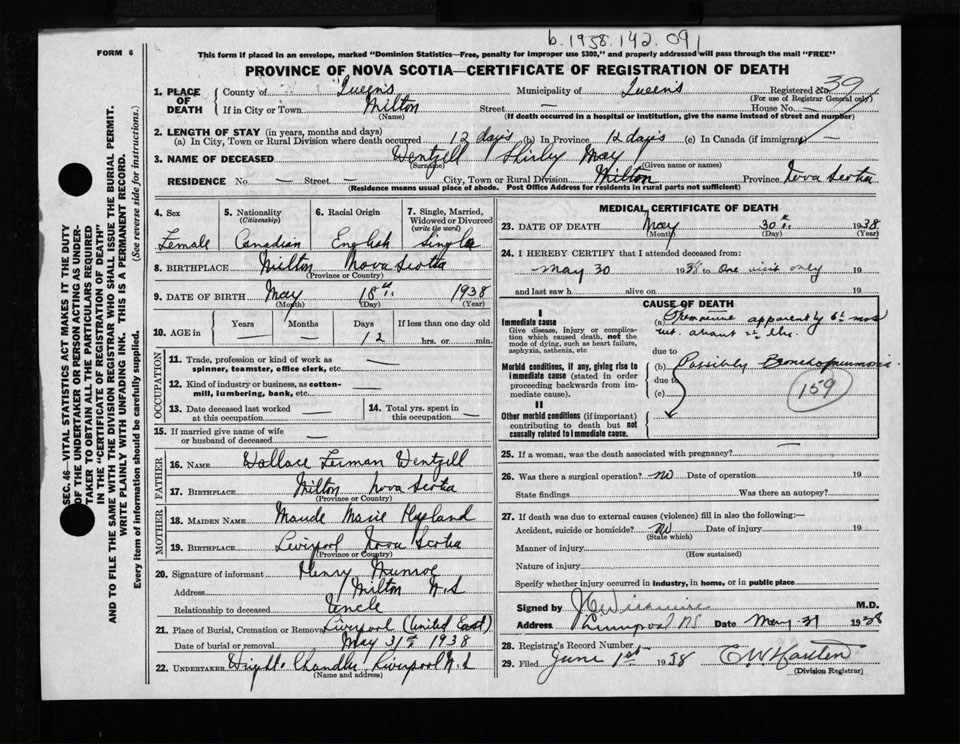 b.1938.142.091
FORM 6
This form if placed in an envelope, marked "Dominion Statistics—Free, penalty for improper use $300," and properly addressed will pass through the mail "FREE"
PROVINCE OF NOVA SCOTIA—CERTIFICATE OF REGISTRATION OF DEATH
1. PLACE OF DEATH County of Queens Municipality of Queens Registered No. 39
(For use of Registrar General only)
If in City or Town Milton Street — House No. —
(Name) (If death occurred in a hospital or institution, give the name instead of street and number)
2. LENGTH OF STAY (in years, months and days)
(a) In City, Town or Rural Division where death occurred 12 days (b) In Province 12 days (c) In Canada (if immigrant) —
3. NAME OF DECEASED Wentzell Shirley May
(Surname) (Given name or names)
RESIDENCE No. — Street — City, Town or Rural Division Milton Province Nova Scotia
(Residence means usual place of abode. Post Office Address for residents in rural parts not sufficient)
4. Sex Female
5. Nationality (Citizenship) Canadian
6. Racial Origin English
7. Single, Married, Widowed or Divorced (write the word) Single
8. BIRTHPLACE Milton Nova Scotia
(Province or Country)
9. DATE OF BIRTH May 18th 1938
(Month) (Day) (Year)
10. AGE in Years — Months — Days 12 If less than one day old hrs. or min.
OCCUPATION
11. Trade, profession or kind of work as spinner, teamster, office clerk, etc. —
12. Kind of industry or business, as cotton-mill, lumbering, bank, etc. —
13. Date deceased last worked at this occupation —
14. Total yrs. spent in this occupation —
15. If married give name of wife or husband of deceased —
FATHER
16. NAME Wallace Wentzell
17. BIRTHPLACE Milton Nova Scotia
(Province or Country)
MOTHER
18. MAIDEN NAME Maude Marie
19. BIRTHPLACE Liverpool Nova Scotia
(Province or Country)
20. Signature of informant Henry Munroe
Address Milton N.S
Relationship to deceased Uncle
21. Place of Burial, Cremation or Removal Liverpool (United East)
Date of burial or removal May 31st 1938
22. UNDERTAKER Chandler Liverpool N.S
(Name and address)
MEDICAL CERTIFICATE OF DEATH
23. DATE OF DEATH May 30th 1938
(Month) (Day) (Year)
24. I HEREBY CERTIFY that I attended deceased from:
May 30 1938 to One visit only 19
and last saw h alive on 19
CAUSE OF DEATH
I
Immediate cause
Give disease, injury or complication which caused death, not the mode of dying, such as heart failure, asphyxia, asthenia, etc
(a) Premature apparently 6½ mos
wt. about 2½ lbs.
due to
Morbid conditions, if any, giving rise to immediate cause (stated in order proceeding backwards from immediate cause).
(b) Possibly Bronchopneumonia.
due to
(c)
159
II
Other morbid conditions (if important) contributing to death but not causally related to immediate cause.
25. If a woman, was the death associated with pregnancy?
26. Was there a surgical operation? No Date of operation 19
State findings Was there an autopsy?
27. If death was due to external causes (violence) fill in also the following:—
Accident, suicide or homicide? No Date of injury 19
(State which)
Manner of injury
(How sustained)
Nature of injury
Specify whether injury occurred in industry, in home, or in public place
Signed by M.D.
Address Liverpool NS Date May 31 1938
28. Registrar's Record Number
29. Filed June 1st 1938
(Division Registrar)
SEC. 46—VITAL STATISTICS ACT MAKES IT THE DUTY
OF THE UNDERTAKER OR PERSON ACTING AS UNDER-
TAKER TO OBTAIN ALL THE PARTICULARS REQUIRED
IN THE "CERTIFICATE OF REGISTRATION OF DEATH"
AND TO FILE THE SAME WITH THE DIVISION REGISTRAR WHO SHALL ISSUE THE BURIAL PERMIT.
WRITE PLAINLY WITH UNFADING INK. THIS IS A PERMANENT RECORD.
Every item of information should be carefully supplied. (See reverse side for instructions.)